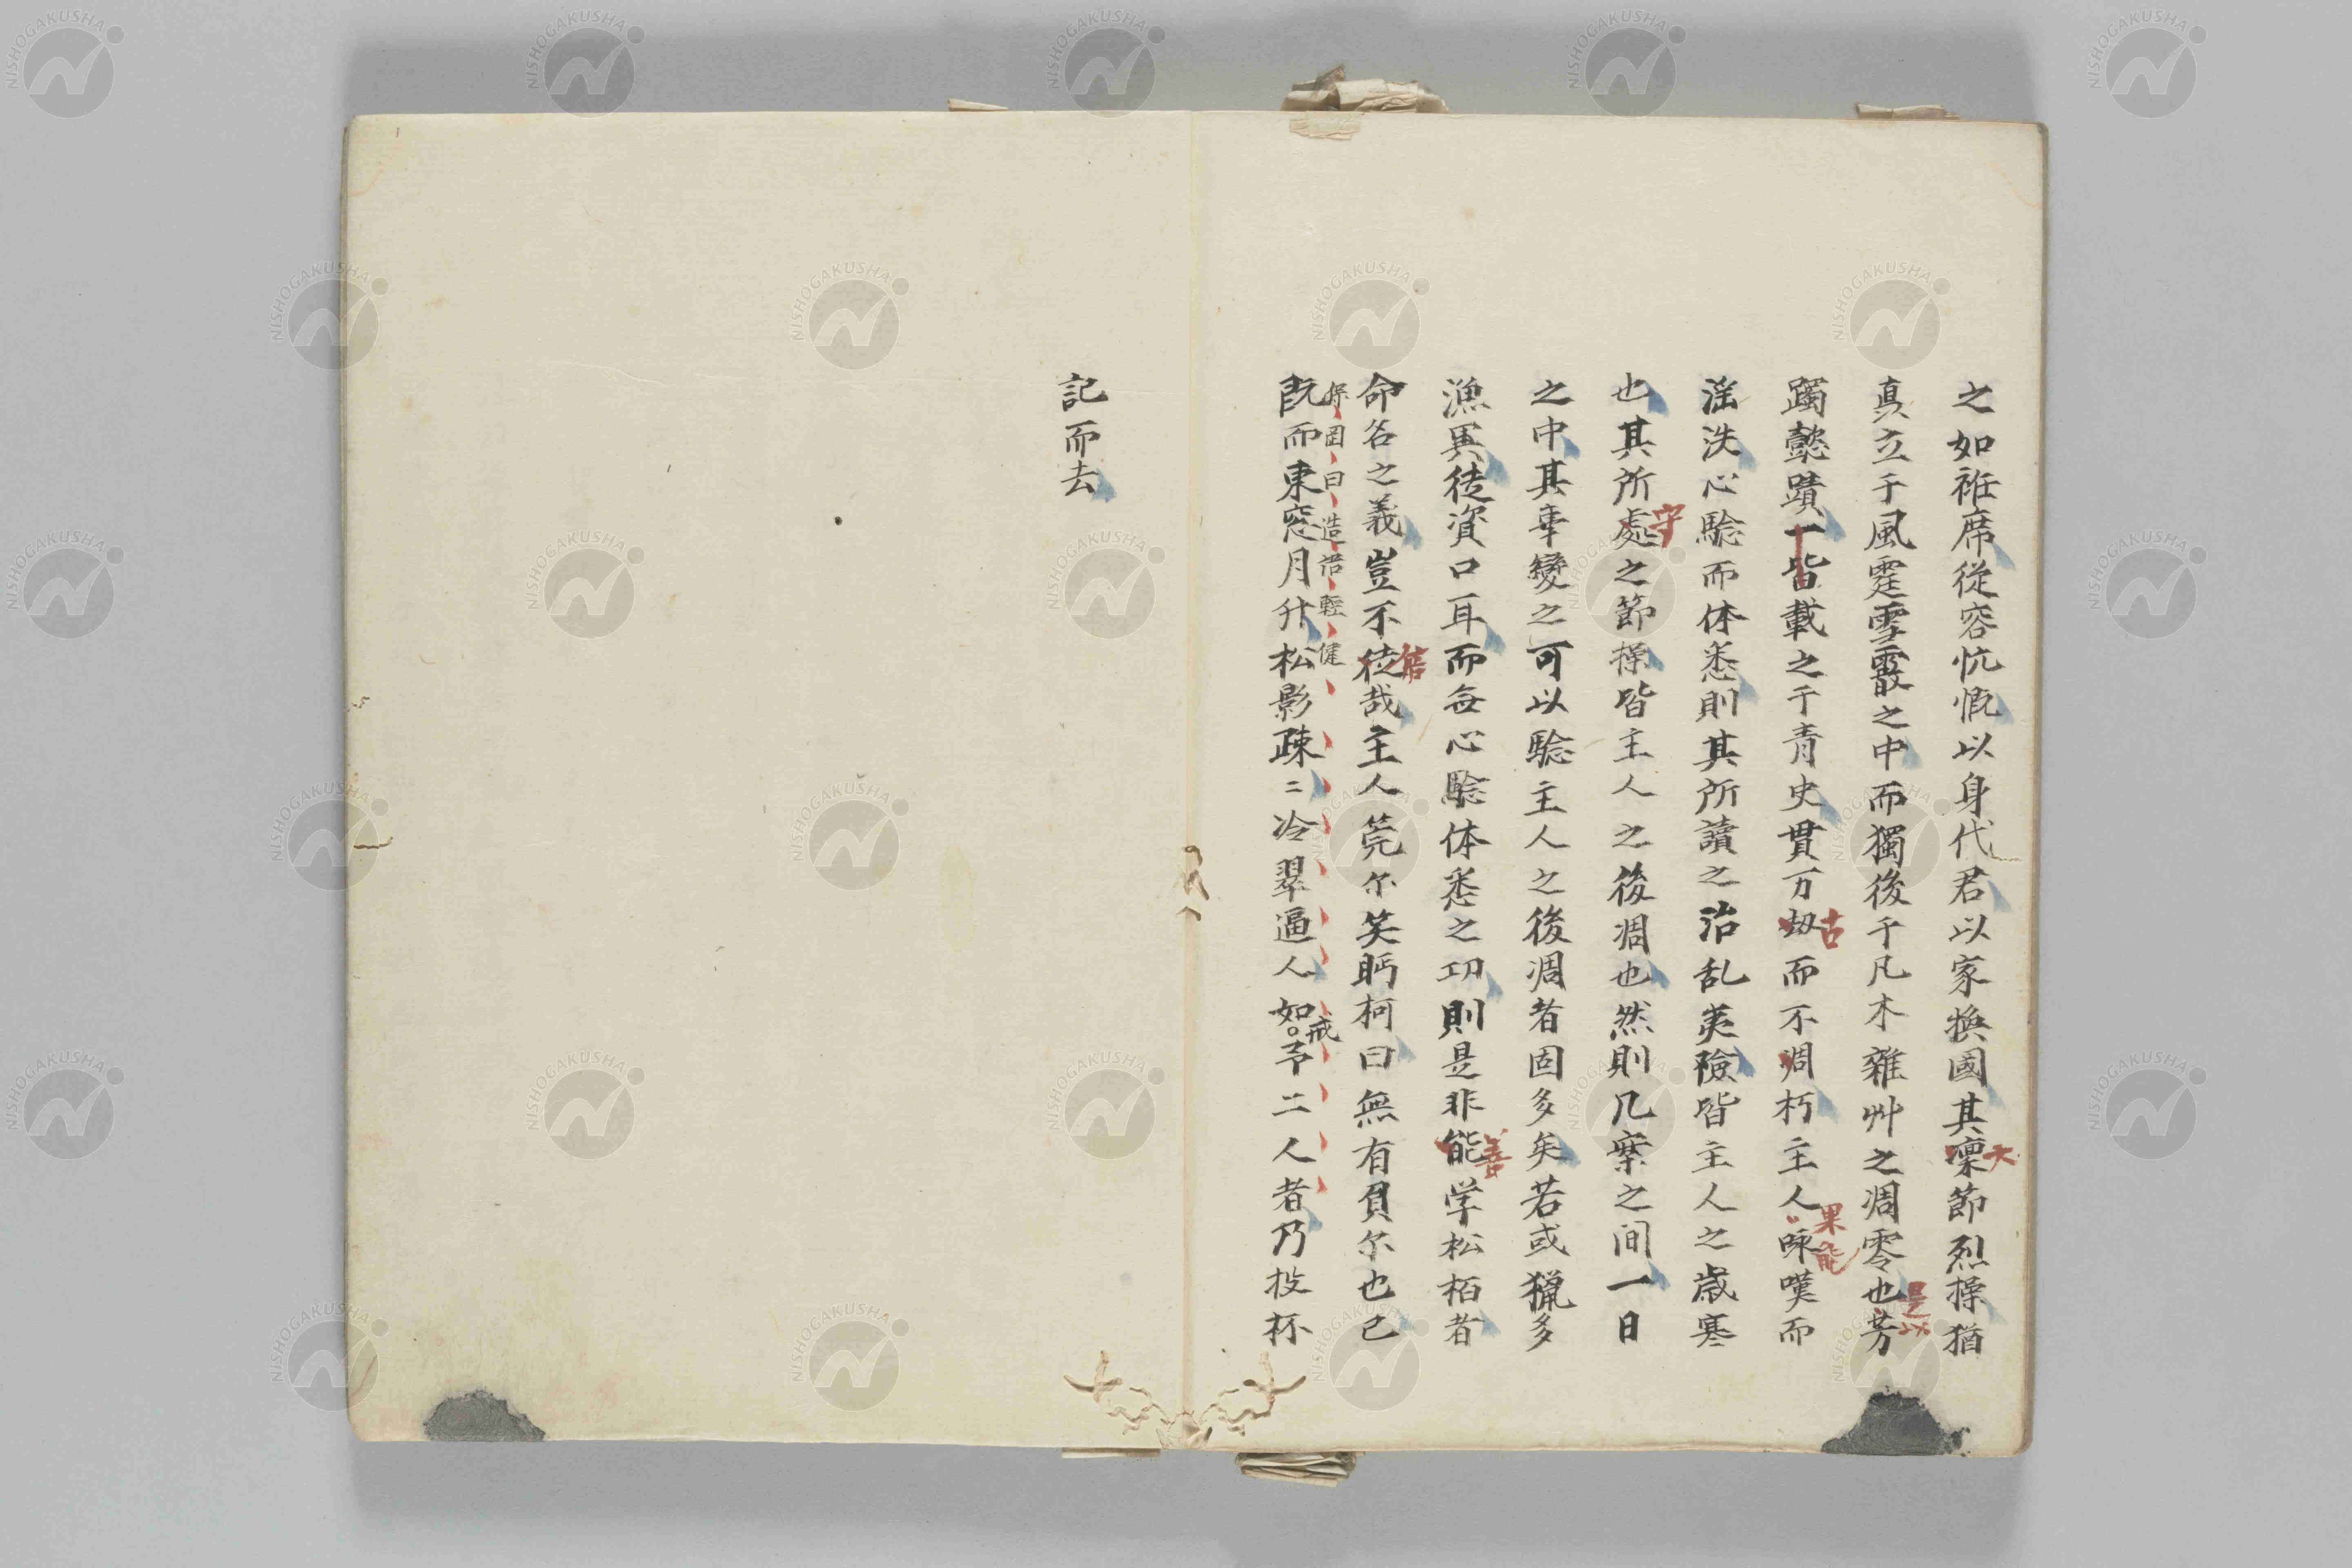 之如袵席従容忼慨以身代君以家換國其凜節烈操猶
大
真立于風霆雪霰之中而獨後千凡木雜艸之凋零也芳
是以
躅懿蹟一皆載之于青史貫万劫而不凋朽主人咏嘆而
古
果能
滛洗心驗而体悉則其所讀之治乱夷險皆主人之歳寒
也其所處之節操皆主人之後凋也然則几案之间一日
守
之中其事變之可以驗主人之後凋者固多矣若或獵多
漁異徒資口耳而每心驗体悉之功則是非能学松栢者
善
命名之義豈不徒哉主人莞尓笑眄柯曰無有負尓也已
既而東窓月升松影疎〻冷翠逼人如予二人者乃投杯
保固曰造語輕健
戒
記而去
NISHOGAKUSHA